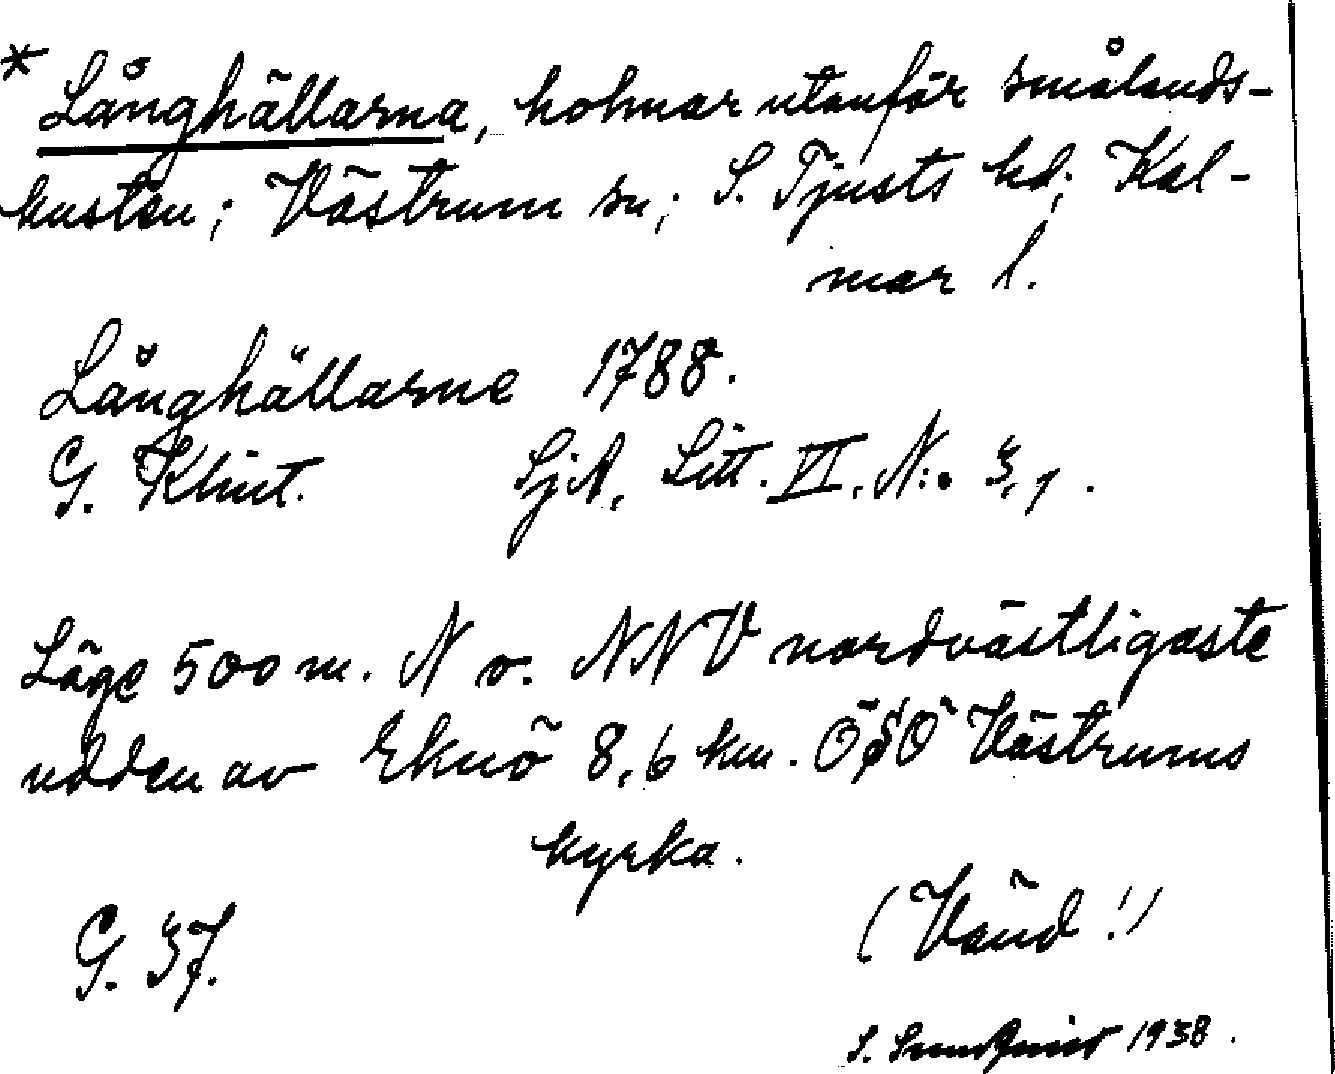 * Långhällarna, holmar utanför smålands-
kusten; Västrum sn; S. Tjusts hd; Kal-
mar l.
Långhällarne 1788.
G. Klint. SjA, Litt. VI. N:o 3, 1.
Läge 500 m. N o. NNV nordvästligaste
udden av Eknö 8,6 km. OSO Västrums
kyrka.
G. 37.
(Vänd!)
S. Sundquist 1938.